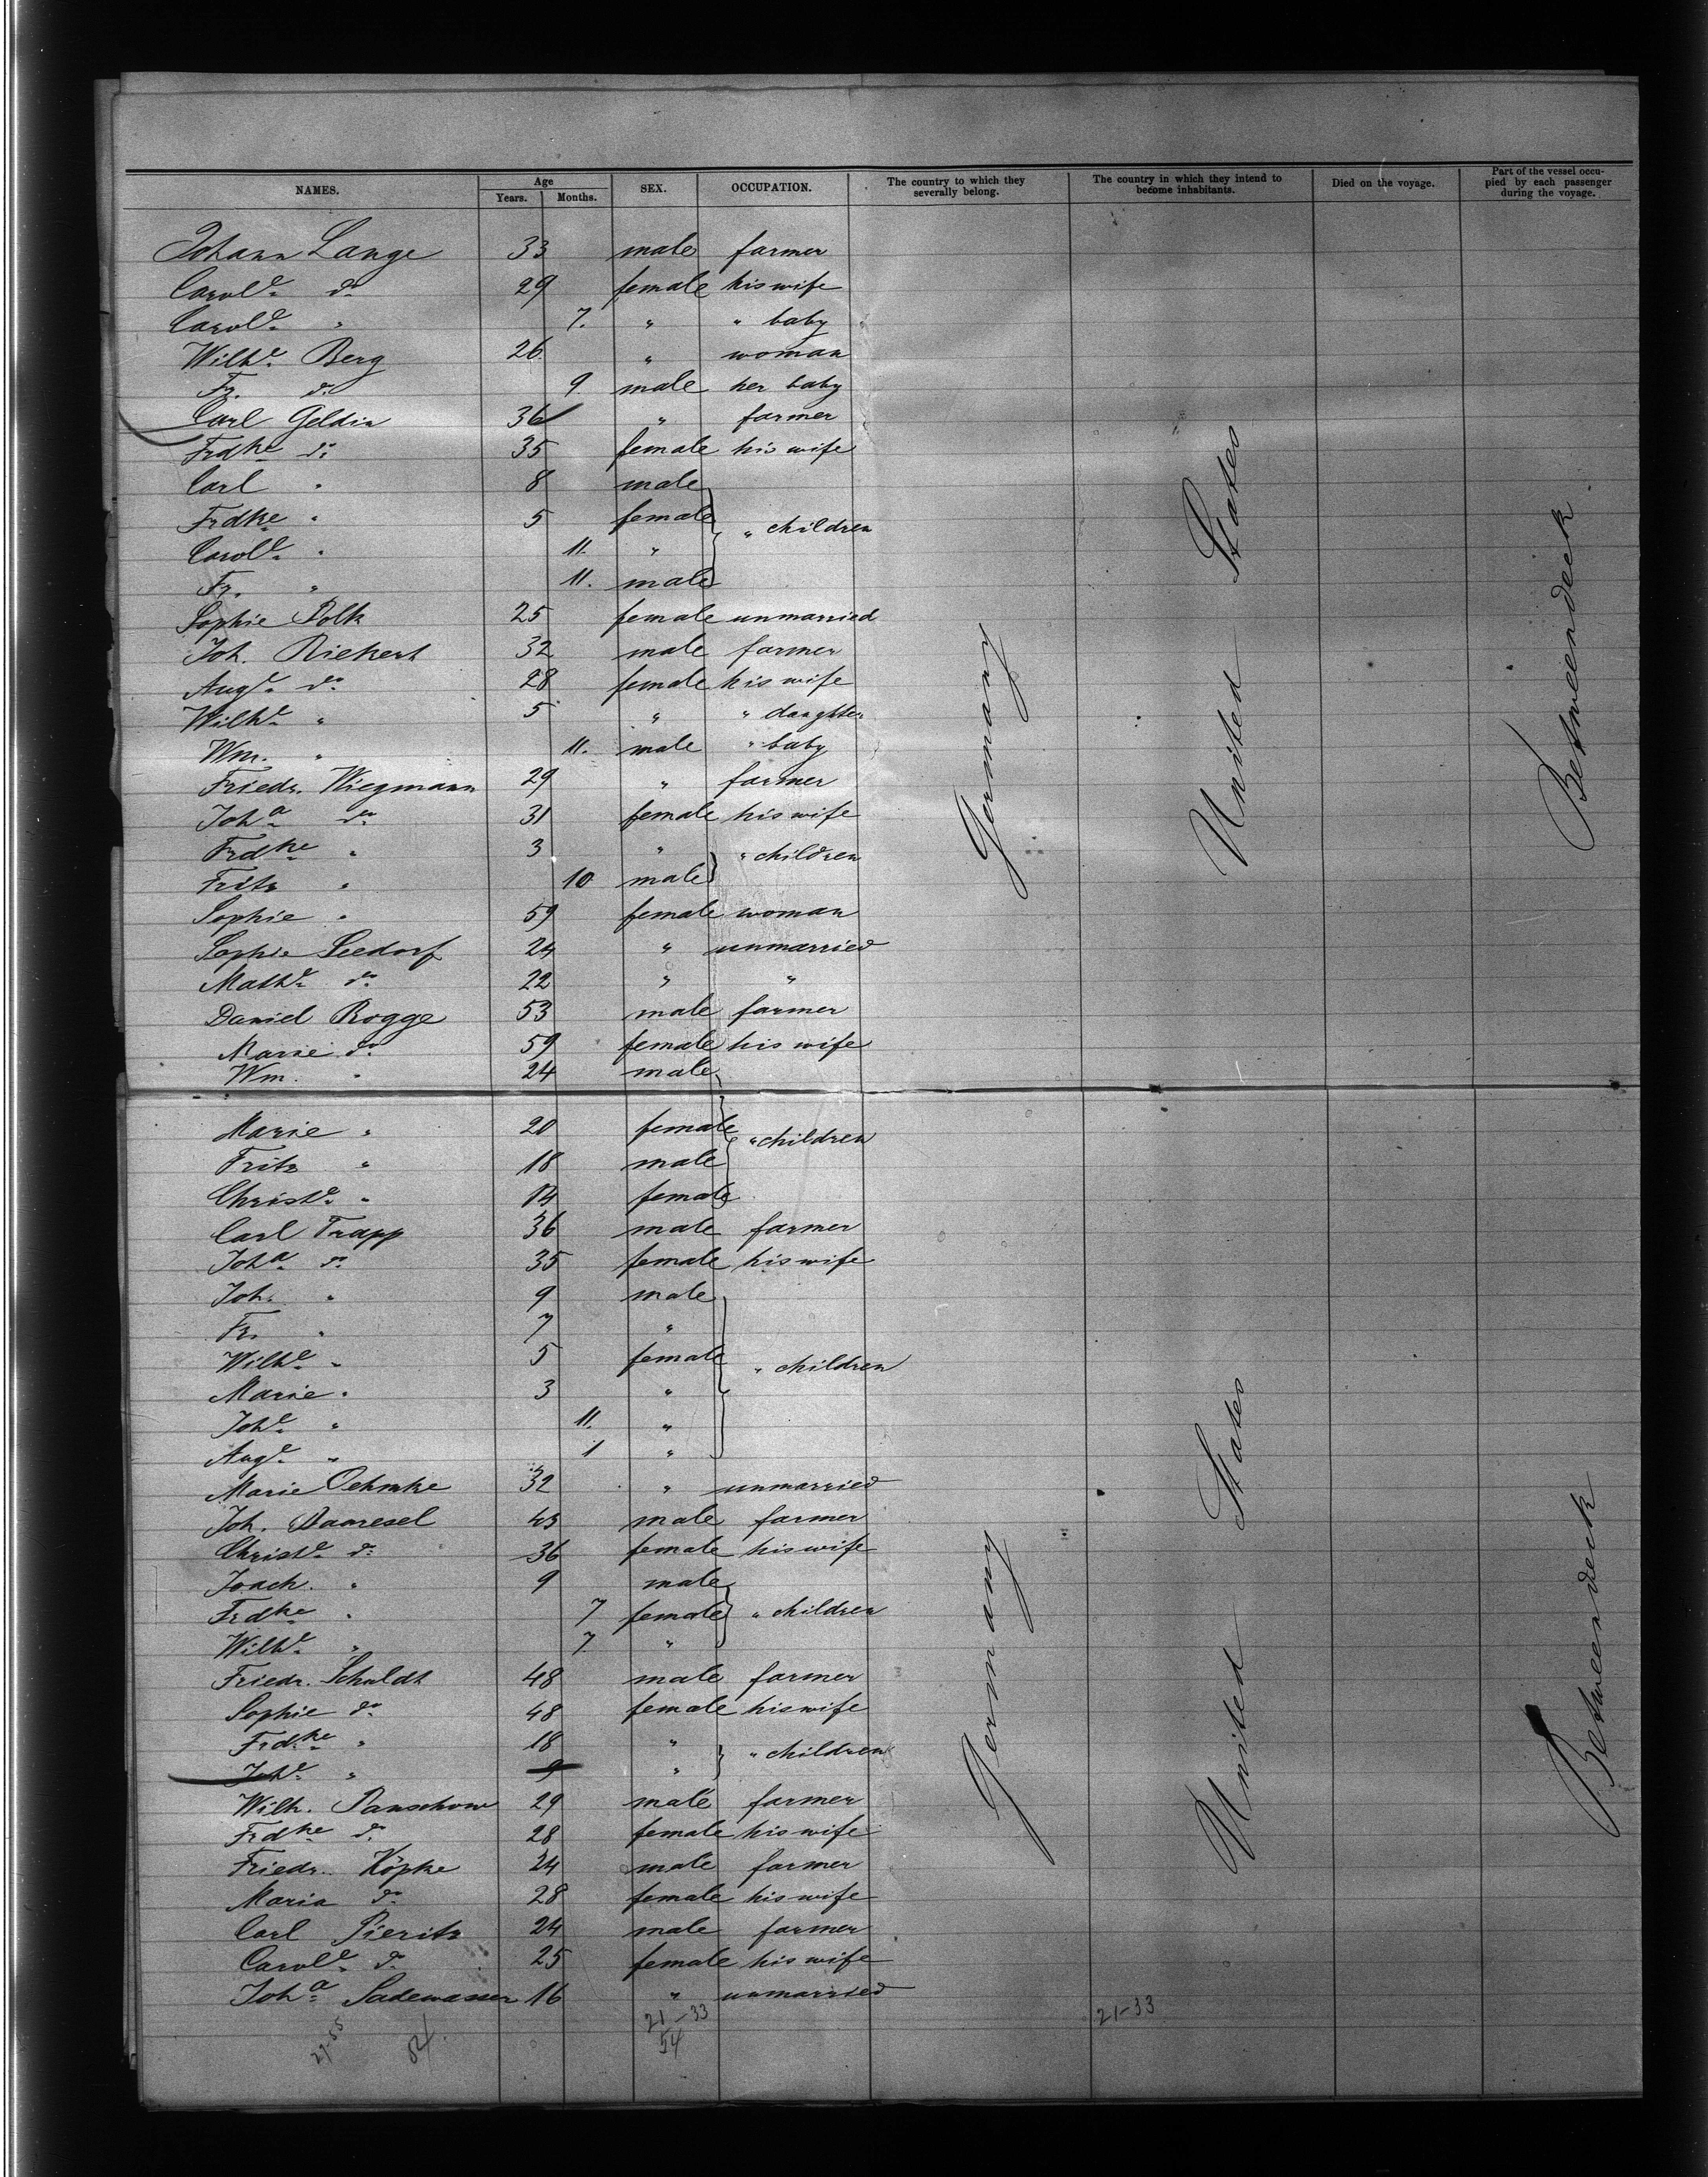 NAMES. Age Years. Months. SEX. OCCUPATION. The country to which they severally belong. The country in which they intend to become inhabitants. Died on the voyage. Part of the vessel occupied by each passenger during the voyage.
Johann Lange 33 male farmer
Carole do 29 female his wife
Carole " 7. " " baby
Wilhe Berg 26 " woman
Fr. do 9. male her baby
Carl Geldin 36 " farmer
Frdke do 35 female his wife
Carl " 8 male
Frdke " 5 female " children
Carole " 11. "
Fr. " 11. male
Sophie Polk 25 female unmarried
Joh. Riekert 32 male farmer
Auge do 28 female his wife
Wilhe " 5 " " daughter
Wm. " 11. male " baby
Friedr. Wiegmann 29 " farmer
Joha do 31 female his wife
Frdke " 3 " " children
Fritz " 10 male
Sophie " 59 female woman
Sophie Seedorf 24 " unmarried
Mathe do 22 " "
Daniel Rogge 53 male farmer
Marie do 59 female his wife
Wm. " 24 male
Marie " 20 female " children
Fritz " 18 male
Christe " 14 female
Carl Trapp 36 male farmer
Joha do 35 female his wife
Joh. " 9 male
Fr. " 7 "
Wilhe " 5 female " children
Marie " 3 "
Johe " 11. "
Auge " 1 "
Marie Oehmke 32 " unmarried
Joh. Damresel 43 male farmer
Christe do 36 female his wife
Joach. " 9 male
Frdke " 7 female " children
Wilhe " 7. "
Friedr. Schuldt 48 male farmer
Sophie do 48 female his wife
Frdke " 18 " " children
Johe " 9 "
Wilh. Panschow 29 male farmer
Frdke do 28 female his wife
Friedr. Köpke 24 male farmer
Maria do 28 female his wife
Carl Pieritz 24 male farmer
Carole do 25 female his wife
Joha Sadewasser 16 " unmarried
21-33 21-33
54
Germany United States Betweendeck.
Germany United States Betweendeck